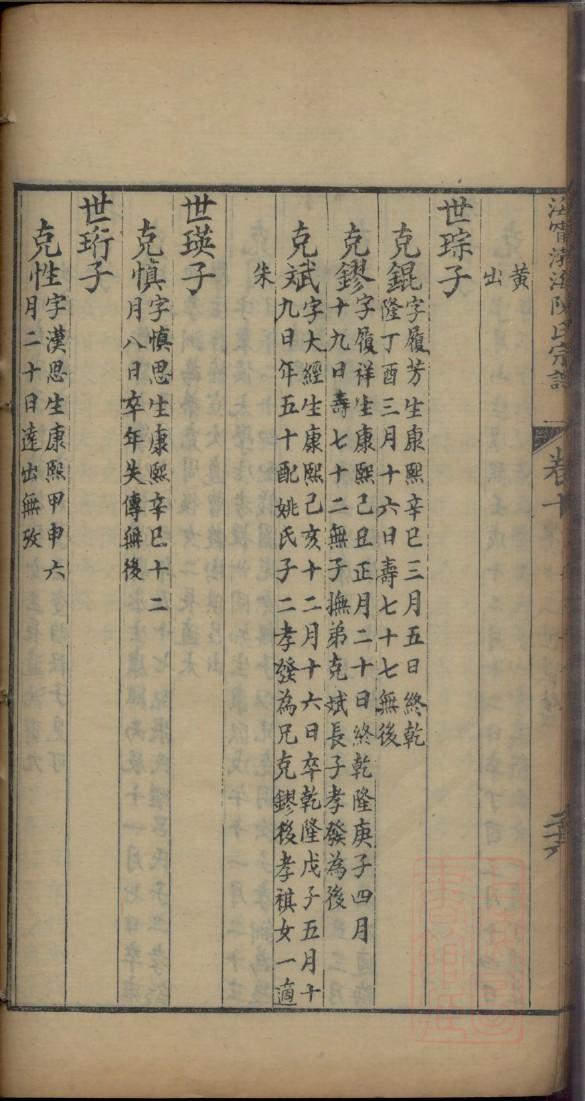 海寧渤海陳氏宗譜
卷十
二六
黃
出
世琮子
克錕字履芳生康熙辛巳三月五日終乾
隆丁酉三月十六日壽七十七無後
克鏐字履祥生康熙己丑正月二十日終乾隆庚子四月
十九日壽七十二無子撫弟克斌長子孝發為後
克斌字大經生康熙己亥十二月十六日卒乾隆戊子五月十
九日年五十配姚氏子二孝發為兄克鏐後孝祺女一適
朱
世瑛子
克慎字慎思生康熙辛巳十二
月八日卒年失傳無後
世珩子
克性字漢思生康熙甲申六
月二十日遠出無攷